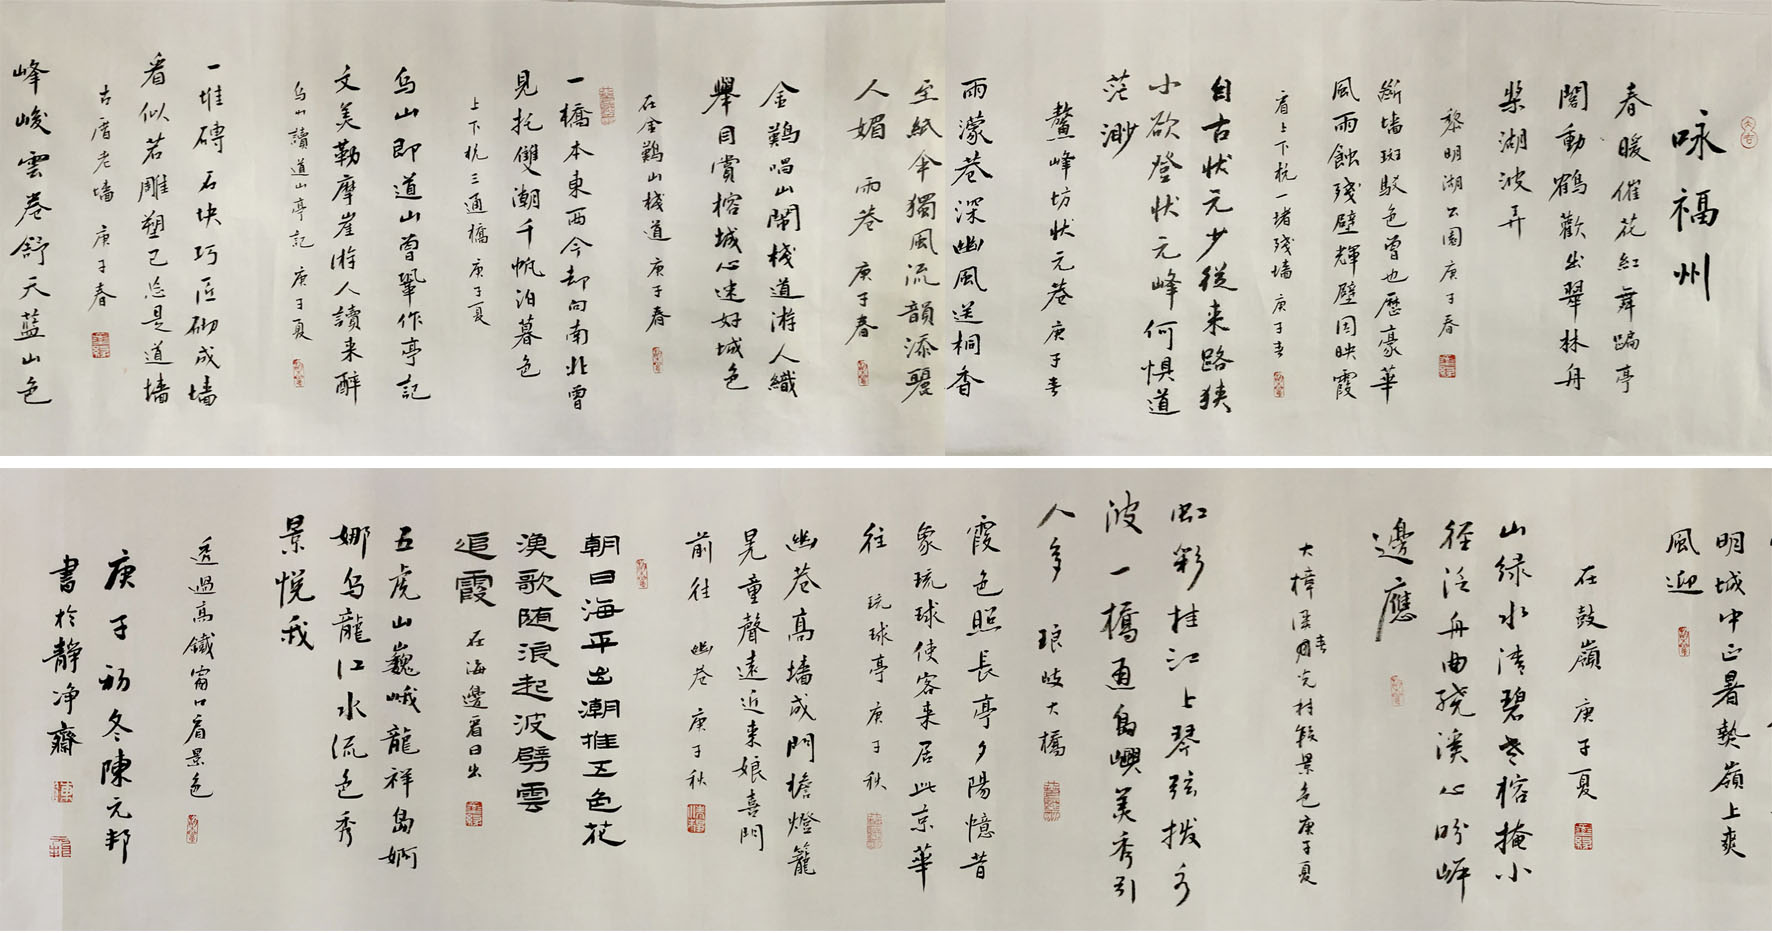 咏福州
春暖催花紅舞蹁亭
閣動鶴歡出翠林舟
槳湖波弄
黎明湖公園庚子春
斷墙斑駁色曾也歷豪華
風雨蝕殘壁輝壁因映霞
看上下杭一堵殘墻庚子春
自古狀元少從来路狹
小欲登状元峰何惧道
茫渺
鰲峰坊狀元巷庚子春
雨濛巷深幽風送桐香
至紙伞獨風流韻添麗
人媚 雨巷 庚子春
金鷄唱山閙棧道游人織
舉目賞榕城心迷好城色
在金鷄山棧道 庚子春
一橋本東西今却向南北曾
見托雙潮千帆泊暮色
上下杭三通橋 庚子夏
烏山即道山曾鞏作亭記
文美勒摩崖游人讀来醉
烏山讀道山亭記 庚子夏
一堆磚石块巧匠砌成墙
看似若雕塑已总是道墙
古厝老墙 庚子春
峰峻雲巻舒天藍山色
明城中正暑熱嶺上爽
風迎
在鼓嶺 庚子夏
山绿水清碧老榕掩小
径泛舟曲繞溪心吩岸
邊應
庚子夏
虹彩挂江上琴弦撥水
波一橋通島嶼美秀引
人多 琅岐大橋
霞色照長亭夕陽憶昔
象琉球使客来居此京華
往 琉球亭 庚子秋
幽巷高墙成門檐燈籠
晃童聲遠近来娘喜門
前往 幽巷 庚子秋
朝日海平出潮推五色花
漁歌随浪起波劈雲
追霞 在海邊看日出
五虎山巍峨龍祥島婀
娜烏龍江水流色秀
景悦我
透過高鐵窗口看景色
庚子初冬陳元邦
書於静净齋